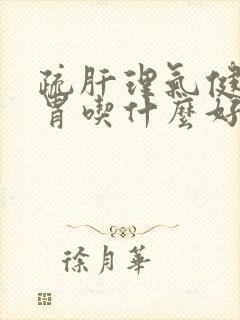 疏肝理氣健
胃喫什麼好
徐月華